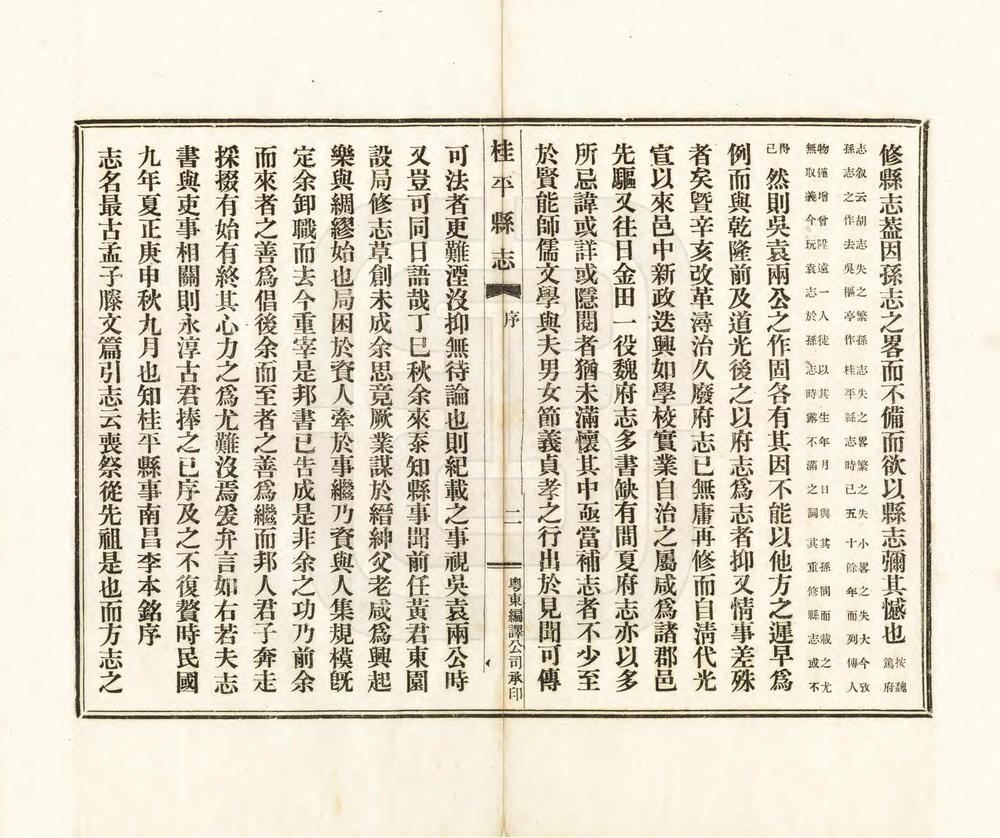 修縣志葢因孫志之畧而不備而欲以縣志彌其憾也按魏篤府
志叙云胡志失之繁孫志失之畧繁之失小畧之失大今攷
孫志之作去吳樞亭作桂平縣志時已五十餘年而列傳人
物僅增曾陞遠一人徒以其生年月日與其孫同而載之尤
無取義今玩袁志於孫志時露不滿之詞其重修縣志或不
得已然則吳袁兩公之作固各有其因不能以他方之遲早爲
例而與乾隆前及道光後之以府志爲志者抑又情事差殊
者矣曁辛亥改革潯治久廢府志已無庸再修而自淸代光
宣以來邑中新政迭興如學校實業自治之屬咸爲諸郡邑
先驅又往日金田一役魏府志多書缺有間夏府志亦以多
所忌諱或詳或隱閱者猶未滿懷其中亟當補志者不少至
於賢能師儒文學與夫男女節義貞孝之行出於見聞可傳
桂平縣志
序
二
粵東編譯公司承印
可法者更難湮沒抑無待論也則紀載之事視吳袁兩公時
又豈可同日語哉丁巳秋余來忝知縣事聞前任黃君東園
設局修志草創未成余思竟厥業謀於縉紳父老咸爲興起
樂與綢繆始也局困於資人牽於事繼乃資與人集規模旣
定余卸職而去今重宰是邦書已告成是非余之功乃前余
而來者之善爲倡後余而至者之善爲繼而邦人君子奔走
採掇有始有終其心力之爲尤難沒焉爰弁言如右若夫志
書與吏事相關則永淳古君捧之已序及之不復贅時民國
九年夏正庚申秋九月也知桂平縣事南昌李本銘序
志名最古孟子滕文篇引志云喪祭從先祖是也而方志之